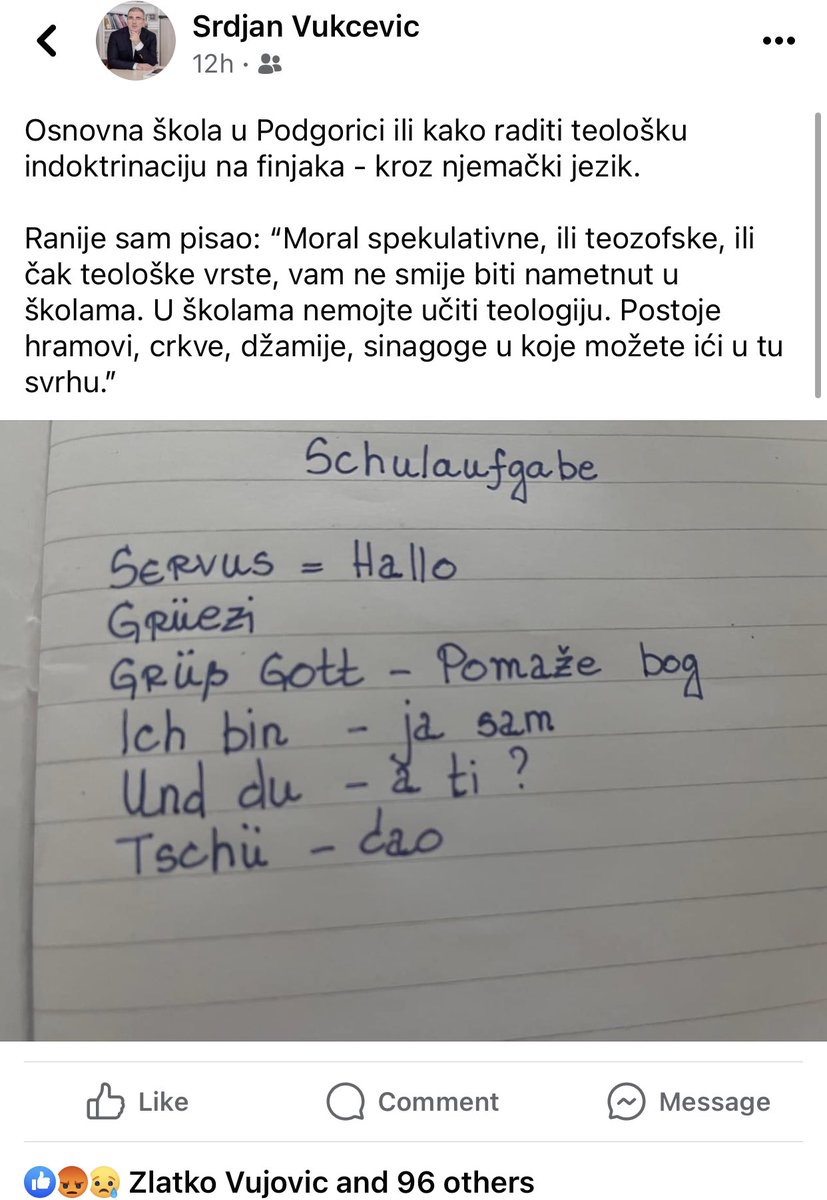 Srdjan Vukcevic
12h ·
Osnovna škola u Podgorici ili kako raditi teološku
indoktrinaciju na finjaka - kroz njemački jezik.
Ranije sam pisao: “Moral spekulativne, ili teozofske, ili
čak teološke vrste, vam ne smije biti nametnut u
školama. U školama nemojte učiti teologiju. Postoje
hramovi, crkve, džamije, sinagoge u koje možete ići u tu
svrhu.”
Schulaufgabe
SERVUS = Hallo
GRÜEZI
GRÜß Gott - Pomaže bog
Ich bin - ja sam
Und du - a ti ?
Tschü - ćao
Like
Comment
Message
Zlatko Vujovic and 96 others